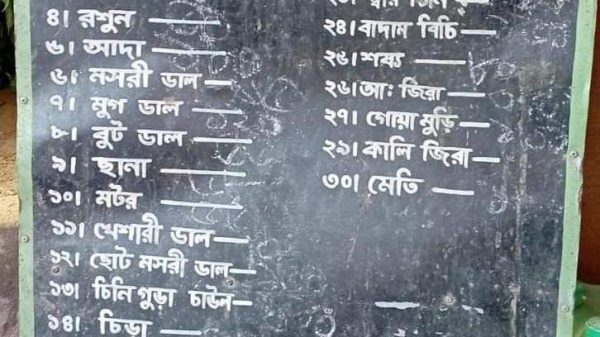 ৪। রশুন
৫। আদা
৬। মসরী ডাল
৭। মুগ ডাল
৮। বুট ডাল
৯। ছানা
১০। মটর
১১। খেশারী ডাল
১২। ছোট মসরী ডাল
১৩। চিনি গুড়া চাউল
১৪। চিড়া
২৪। বাদাম বিচি
২৫। শষ্য
২৬। আঃ জিরা
২৭। গোয়া মুড়ি
২৯। কালি জিরা
৩০। মেতি